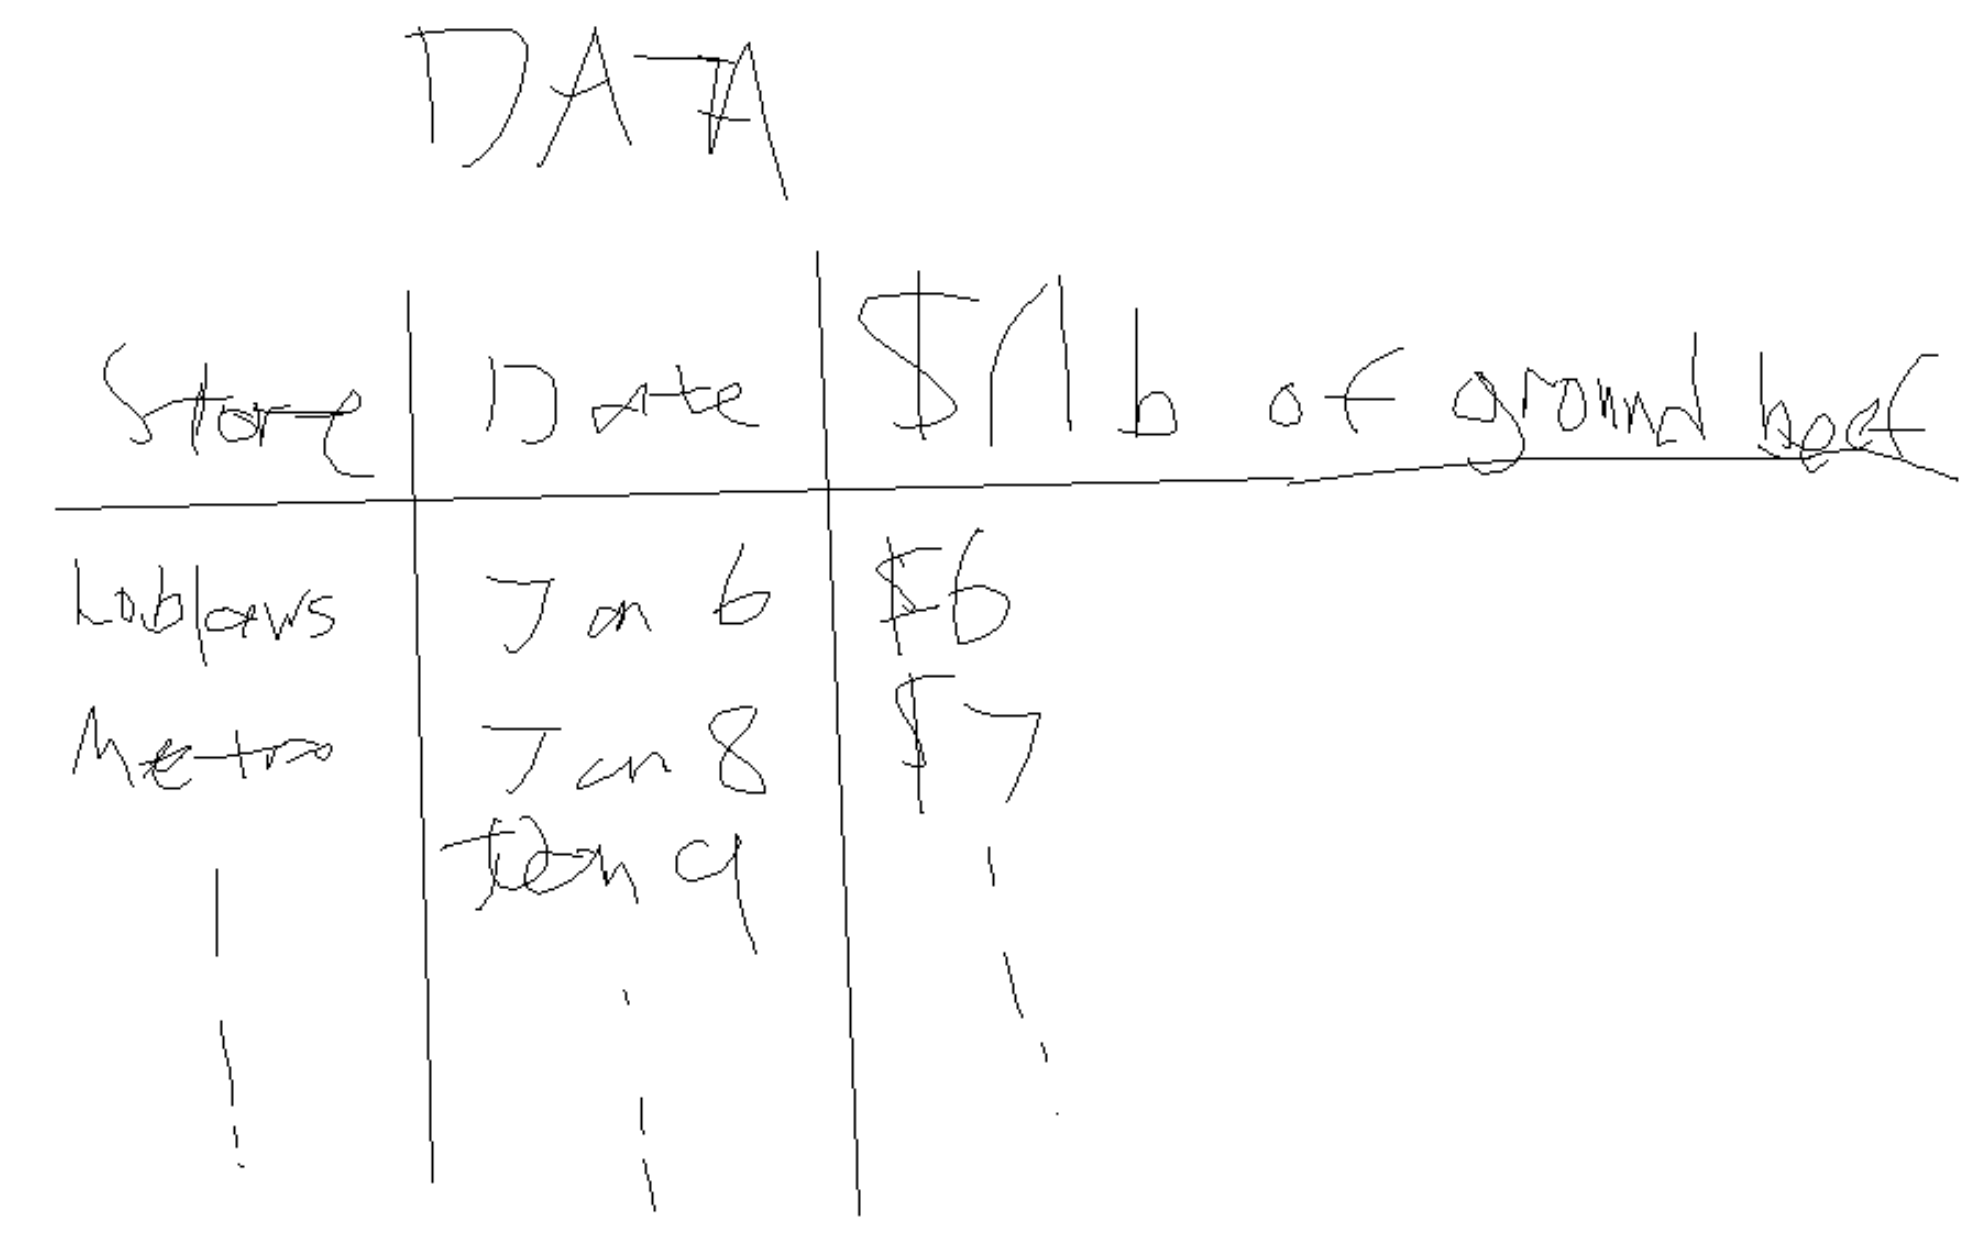 DATA
Store Date $/lb of ground beef
Loblaws Jan 6 $6
Metro Jan 8 $7
Jan 9